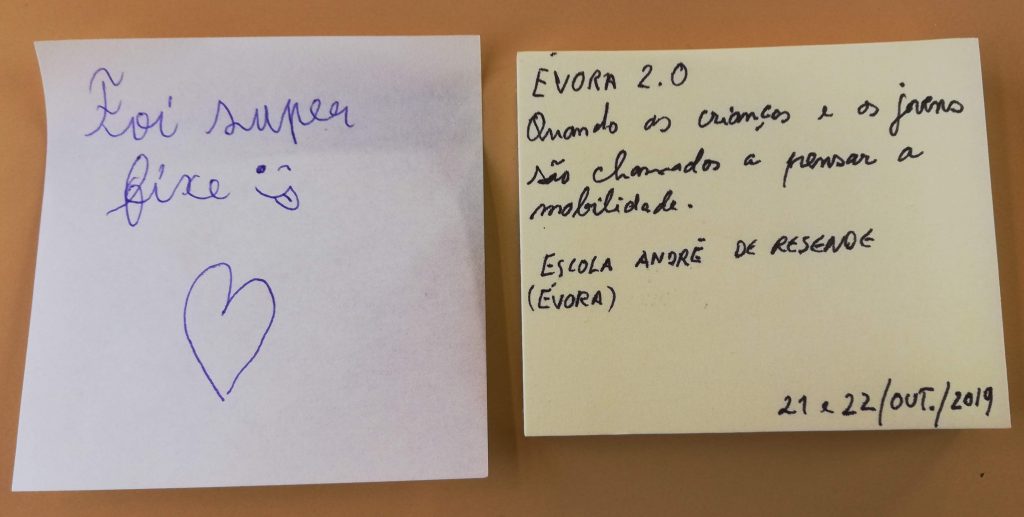 Foi super
fixe :)
ÉVORA 2.0
Quando as crianças e os jovens
são chamados a pensar a
mobilidade.
ESCOLA ANDRÉ DE RESENDE
(ÉVORA)
21 e 22/OUT./2019